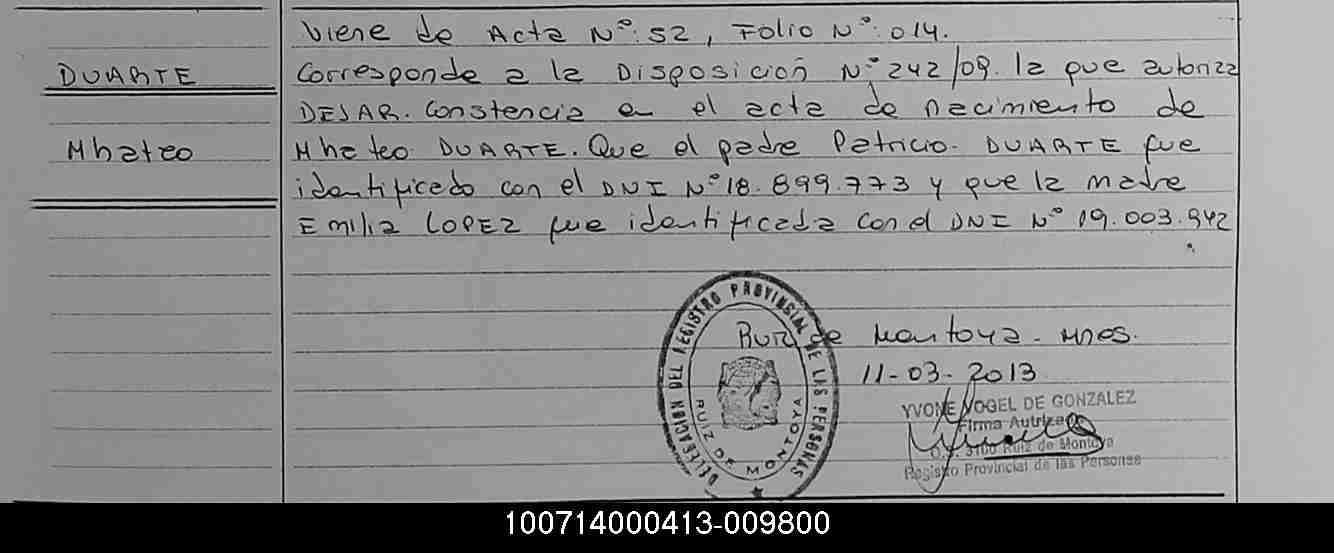 viene de Acta N°: 52, Folio N°: 014.
DUARTE
Corresponde a la Disposición N° 242/09. la que autoriza
DEJAR. Constancia en el acta de nacimiento de
Mhateo
Mhateo DUARTE. Que el padre Patricio. DUARTE fue
identificado con el DNI N° 18.899.773 y que la madre
Emilia LOPEZ fue identificada con el DNI N° 19.003.942
DELEGACION DEL REGISTRO PROVINCIAL DE LAS PERSONAS
RUIZ DE MONTOYA
Ruiz de Montoya - Mnes.
11-03-2013
YVONE VOGEL DE GONZALEZ
Firma Autriza
3100 Ruiz de Montoya
Registro Provincial de las Personas
100714000413-009800